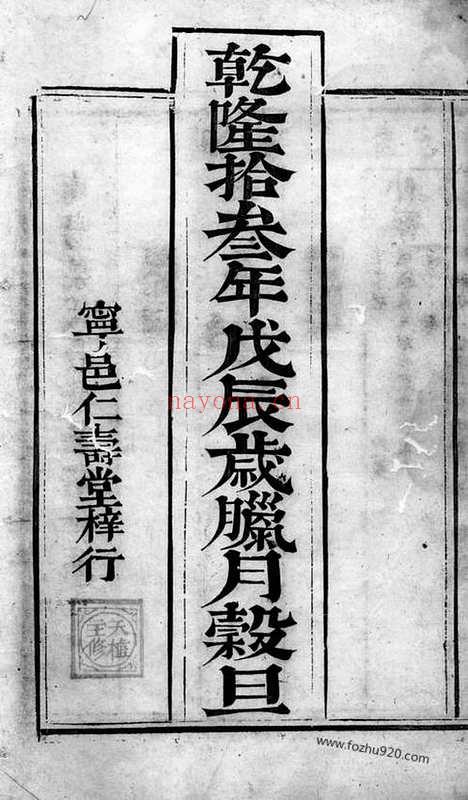 乾隆拾叁年戊辰歲臘月穀旦
寧邑仁壽堂梓行
nayona.cn
www.fozhu920.com